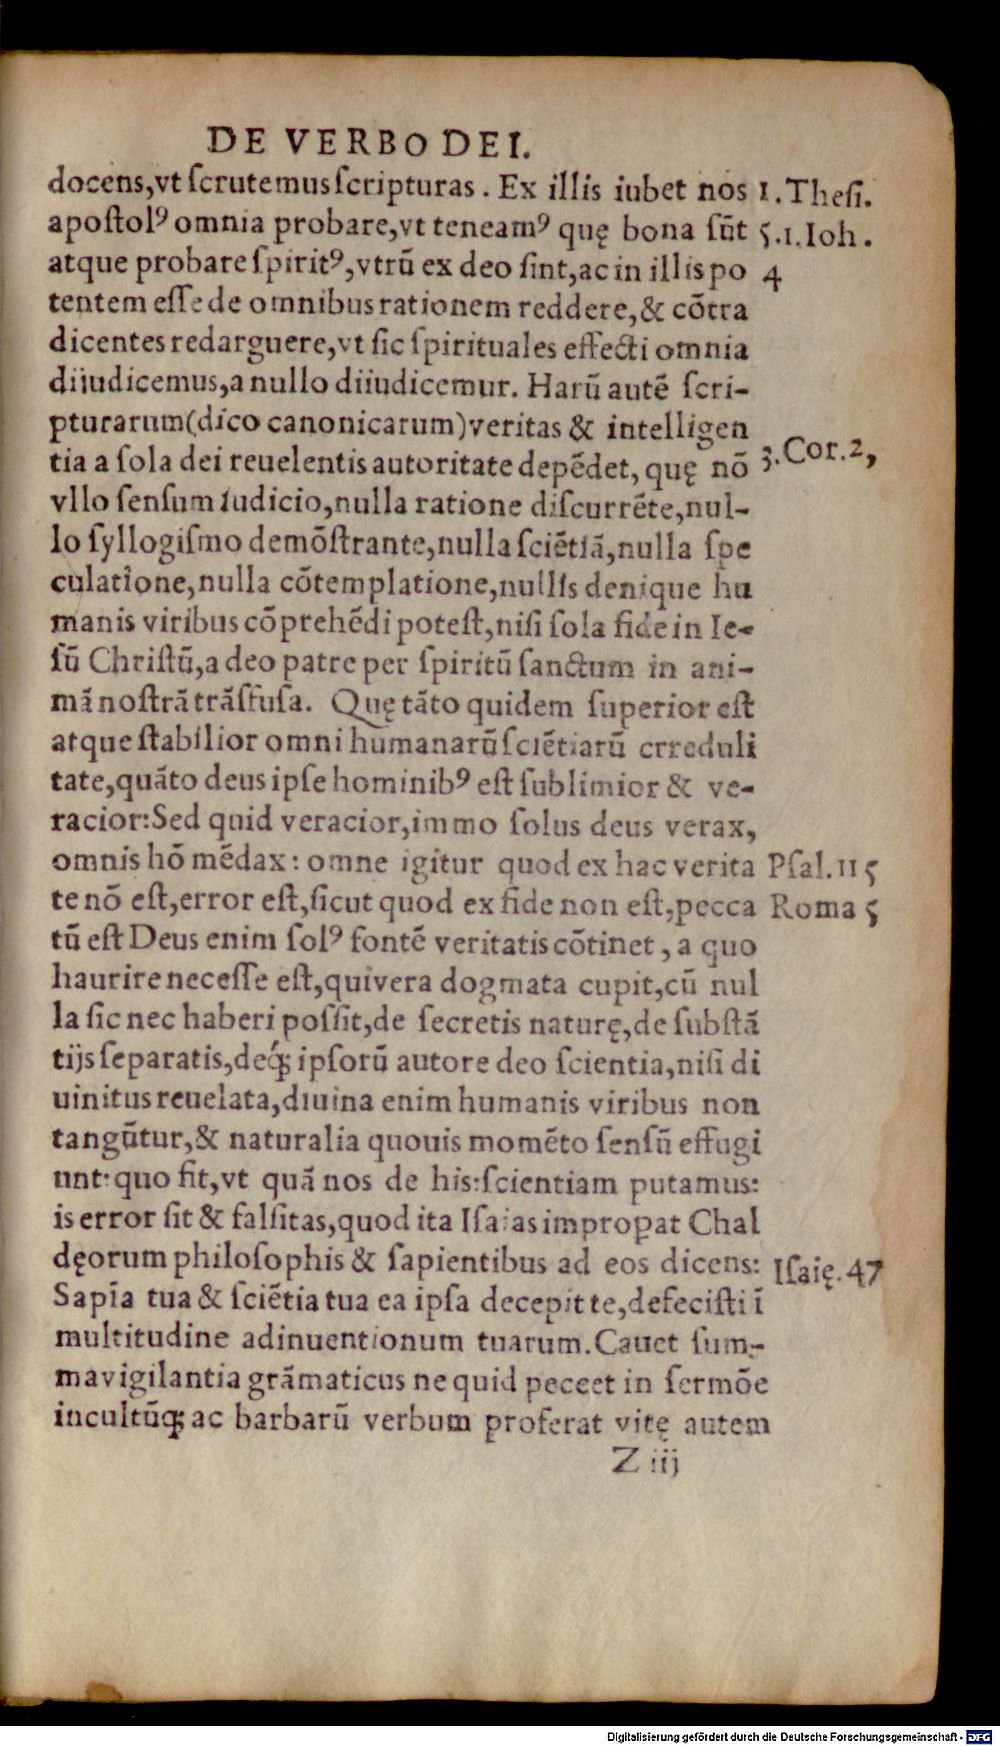 DE VERBO DEI.
docens,vt ſcrutemus ſcripturas. Ex illis iubet nos 1. Theſi.
apoſtolꝰ omnia probare,vt teneamꝰ quę bona ſũt 5.1.Ioh.
atque probare ſpiritꝰ,vtrũ ex deo ſint,ac in illis po 4
tentem eſſe de omnibus rationem reddere,& cõtra
dicentes redarguere,vt ſic ſpirituales effecti omnia
diiudicemus,a nullo diiudicemur. Harũ autẽ ſcri-
pturarum(dico canonicarum)veritas & intelligen
tia a ſola dei reuelentis autoritate depẽdet, quę nõ 3.Cor.2,
vllo ſenſum iudicio,nulla ratione diſcurrẽte,nul-
lo ſyllogiſmo demõſtrante,nulla ſciẽtiã,nulla ſpe
culatione,nulla cõtemplatione,nullis denique hu
manis viribus cõprehẽdi poteſt,niſi ſola fide in Ie-
ſũ Chriſtũ,a deo patre per ſpiritũ ſanctum in ani-
mã noſtrã trãſfuſa. Quę tãto quidem ſuperior eſt
atque ſtabilior omni humanarũ ſciẽtiarũ crreduli
tate,quãto deus ipſe hominibꝰ eſt ſublimior & ve-
racior:Sed quid veracior,immo ſolus deus verax,
omnis hõ mẽdax: omne igitur quod ex hac verita Pſal.115
te nõ eſt,error eſt,ſicut quod ex fide non eſt,pecca Roma 5
tũ eſt Deus enim ſolꝰ fontẽ veritatis cõtinet, a quo
haurire neceſſe eſt,qui vera dogmata cupit,cũ nul
la ſic nec haberi poſſit,de ſecretis naturę,de ſubſtã
tijs ſeparatis,deq́; ipſorũ autore deo ſcientia,niſi di
uinitus reuelata,diuina enim humanis viribus non
tangũtur,& naturalia quouis momẽto ſenſũ effugi
unt:quo fit,vt quã nos de his:ſcientiam putamus:
is error ſit & falſitas,quod ita Iſaias impropat Chal
dęorum philoſophis & ſapientibus ad eos dicens: Iſaię.47
Sapĩa tua & ſciẽtia tua ea ipſa decepit te,defeciſti ĩ
multitudine adinuentionum tuarum.Cauet ſum-
ma vigilantia grãmaticus ne quid peccet in ſermõe
incultũq; ac barbarũ verbum proferat vitę autem
Z iij
Digitalisierung gefördert durch die Deutsche Forschungsgemeinschaft - DFG